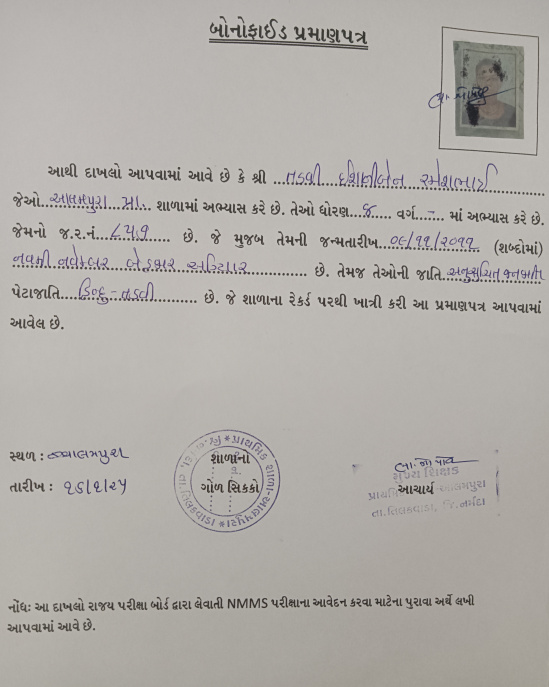 બોનોફાઈડ પ્રમાણપત્ર
આથી દાખલો આપવામાં આવે છે કે શ્રી ...તડવી દર્શાનીબેન રમેશભાઈ
જેઓ..આલમપુરા પ્રા... શાળામાં અભ્યાસ કરે છે. તેઓ ધોરણ..૮.... વર્ગ..–... માં અભ્યાસ કરે છે.
જેમનો જ.ર.નં...૮૫૭... છે. જે મુજબ તેમની જન્મતારીખ...૦૯/૧૧/૨૦૧૧.. (શબ્દોમાં)
નવમી નવેમ્બર બેહજાર અગિયાર.......... છે. તેમજ તેઓની જાતિ..અનુસુચિત જનજાતિ
પેટાજાતિ....હિન્દુ-તડવી...... છે. જે શાળાના રેકર્ડ પરથી ખાત્રી કરી આ પ્રમાણપત્ર આપવામાં
આવેલ છે.
સ્થળ : આલમપુરા
તારીખ : ૧૬/૧/૨૫
શાળાનો
ગોળ સિક્કો
મુખ્ય શિક્ષક
આચાર્ય આલમપુરા
તા.તિલકવાડા, જિ.નર્મદા
નોંધ: આ દાખલો રાજય પરીક્ષા બોર્ડ દ્વારા લેવાતી NMMS પરીક્ષાના આવેદન કરવા માટેના પુરાવા અર્થે લખી
આપવામાં આવે છે.